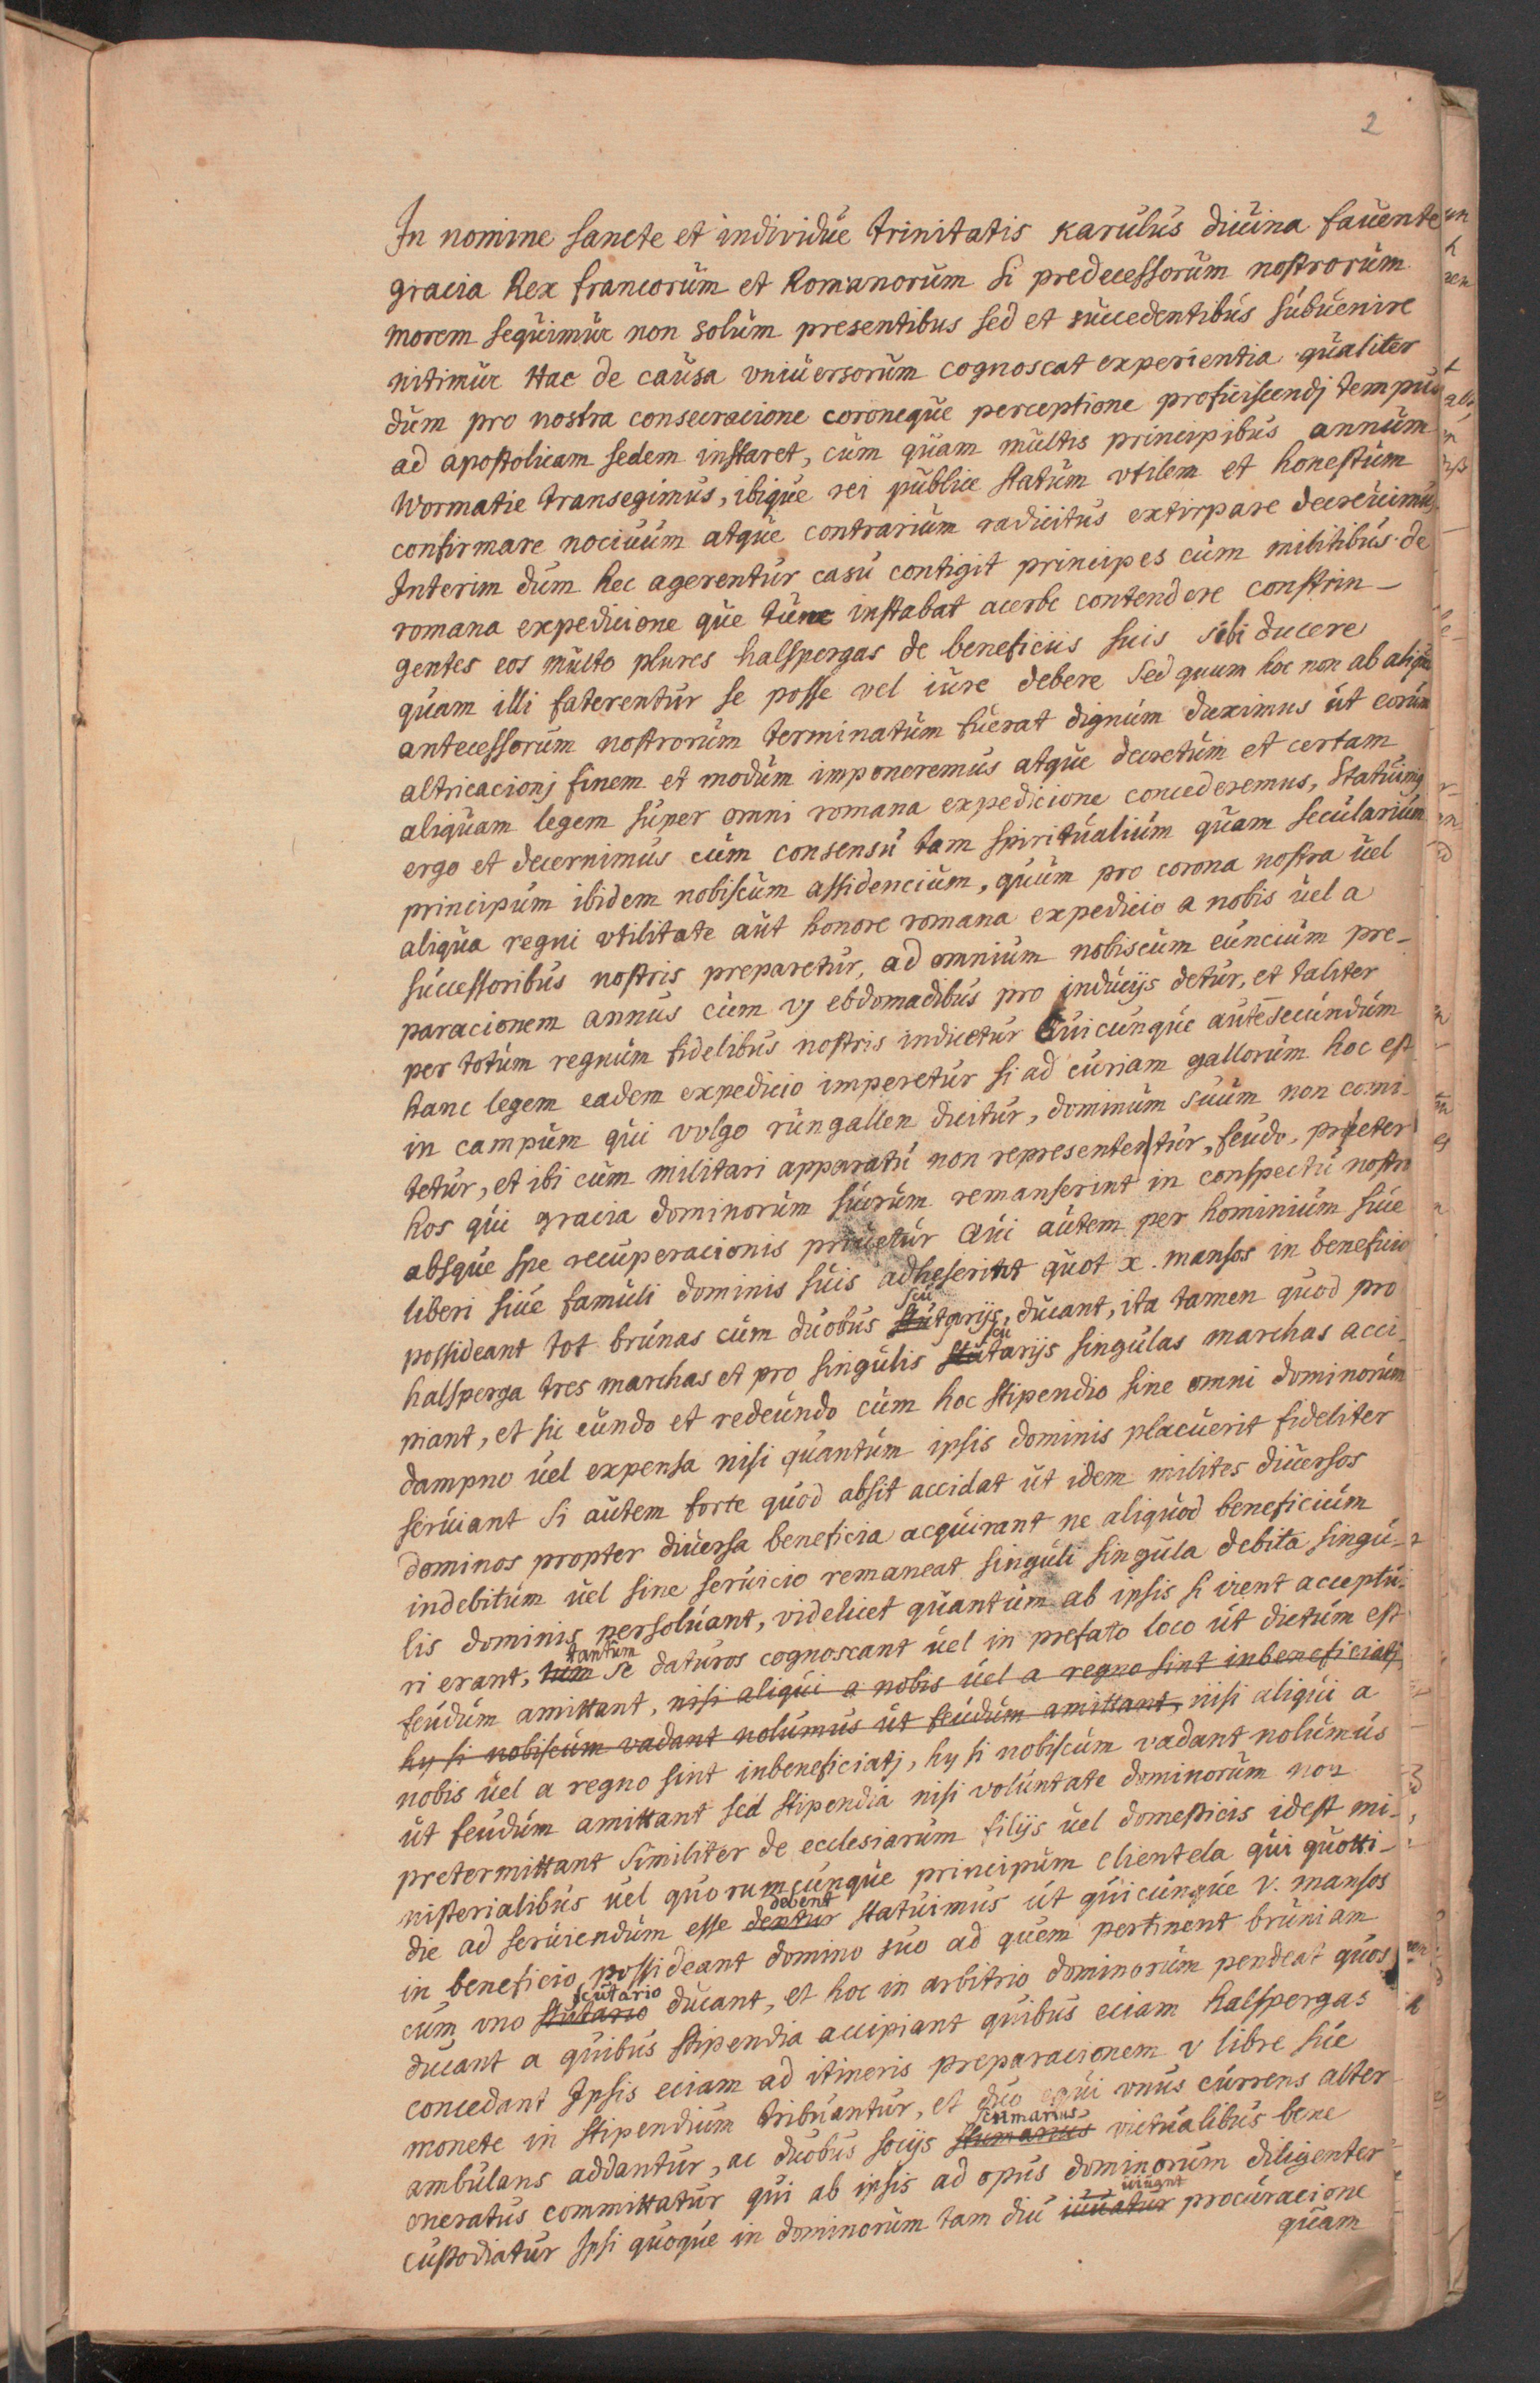 2
In nomine sancte et individue trinitatis Karulus diuina fauente
gracia Rex francorum et Romanorum Si predecessorum nostrorum
morem sequimur non solum presentibus sed et succedentibus subuenire
nitimur Hac de causa vniuersorum cognoscat experientia qualiter
dum pro nostra consecracione coroneque perceptione proficiscendj tempus
ad apostolicam sedem instaret, cum quam multis principibus annum
Wormatie transegimus, ibique rei publice statum vtilem et honestum
confirmare nociuum atque contrarium radicitus extirpare decreuimus
Interim dum hec agerentur casu contigit principes cum militibus de
romana expedicione que tunc instabat acerbe contendere constrin-
gentes eos multo plures halspergas de beneficiis suis sibi ducere
quam illi faterentur se posse vel iure debere Sed quum hoc non ab aliquo
antecessorum nostrorum terminatum fuerat dignum duximus ut eorum
altricacionj finem et modum imponeremus atque decretum et certam
aliquam legem super omni romana expedicione concederemus, Statuimus
ergo et decernimus cum consensu tam spiritualium quam secularium
principum ibidem nobiscum assidencium, quum pro corona nostra uel
aliqua regni vtilitate aut honore romana expedicio a nobis uel a
successoribus nostris preparetur, ad omnium nobiscum euncium pre-
paracionem annus cum vj ebdomadibus pro inducijs detur, et taliter
per totum regnum fidelibus nostris indicetur Cuicunque aute secundum
hanc legem eadem expedicio imperetur si ad curiam gallorum hoc est
in campum qui volgo rungallen dicitur, dominum suum non comi-
tetur, et ibi cum militari apparatu non representetur, feudo, preter
hos qui gracia dominorum suorum remanserint in conspectu nostro
absque spe recuperacionis priuetur Qui autem per hominium siue
liberi siue famuli dominis suis adheserint quot x. mansos in beneficio
possideant tot brunas cum duobus scutarijs, ducant, ita tamen quod pro
halsperga tres marchas et pro singulis scutarijs singulas marchas acci-
piant, et sic eundo et redeundo cum hoc stipendio sine omni dominorum
dampno uel expensa nisi quantum ipsis dominis placuerit fideliter
seruiant Si autem forte quod absit accidat ut idem milites diuersos
dominos propter diuersa beneficia acquirant ne aliquod beneficium
indebitum uel sine seruicio remaneat singuli singula debita singu-
lis dominis persoluant, videlicet quantum ab ipsis si irent acceptu-
ri erant, tum tantum se daturos cognoscant uel in prefato loco ut dictum est
feudum amittant, nisi aliqui a nobis uel a regno sint inbeneficiatj
hy si nobiscum vadant nolumus ut feudum amittant, nisi aliqui a
nobis uel a regno sint inbeneficiatj, hy si nobiscum vadant nolumus
ut feudum amittant sed stipendia nisi voluntate dominorum non
pretermittant Similiter de ecclesiarum filijs uel domesticis idest mi-
nisterialibus uel quorumcunque principum clientela qui quotti-
die ad seruiendum esse dentur debent statuimus ut quicunque v. mansos
in beneficio possideant domino suo ad quem pertinent bruniam
cum vno stutario scutario ducant, et hoc in arbitrio dominorum pendeat quos
ducant a quibus stipendia accipiant quibus eciam halspergas
concedant Ipsis eciam ad itineris preparacionem v libre sue
monete in stipendium tribuantur, et duo equi vnus currens alter
ambulans addantur, ac duobus socijs stumarius sumarius victualibus bene
oneratus committatur qui ab ipsis ad opus dominorum diligenter
custodiatur Ipsi quoque in dominorum tam diu iuuatur uiuant procuracione
quam